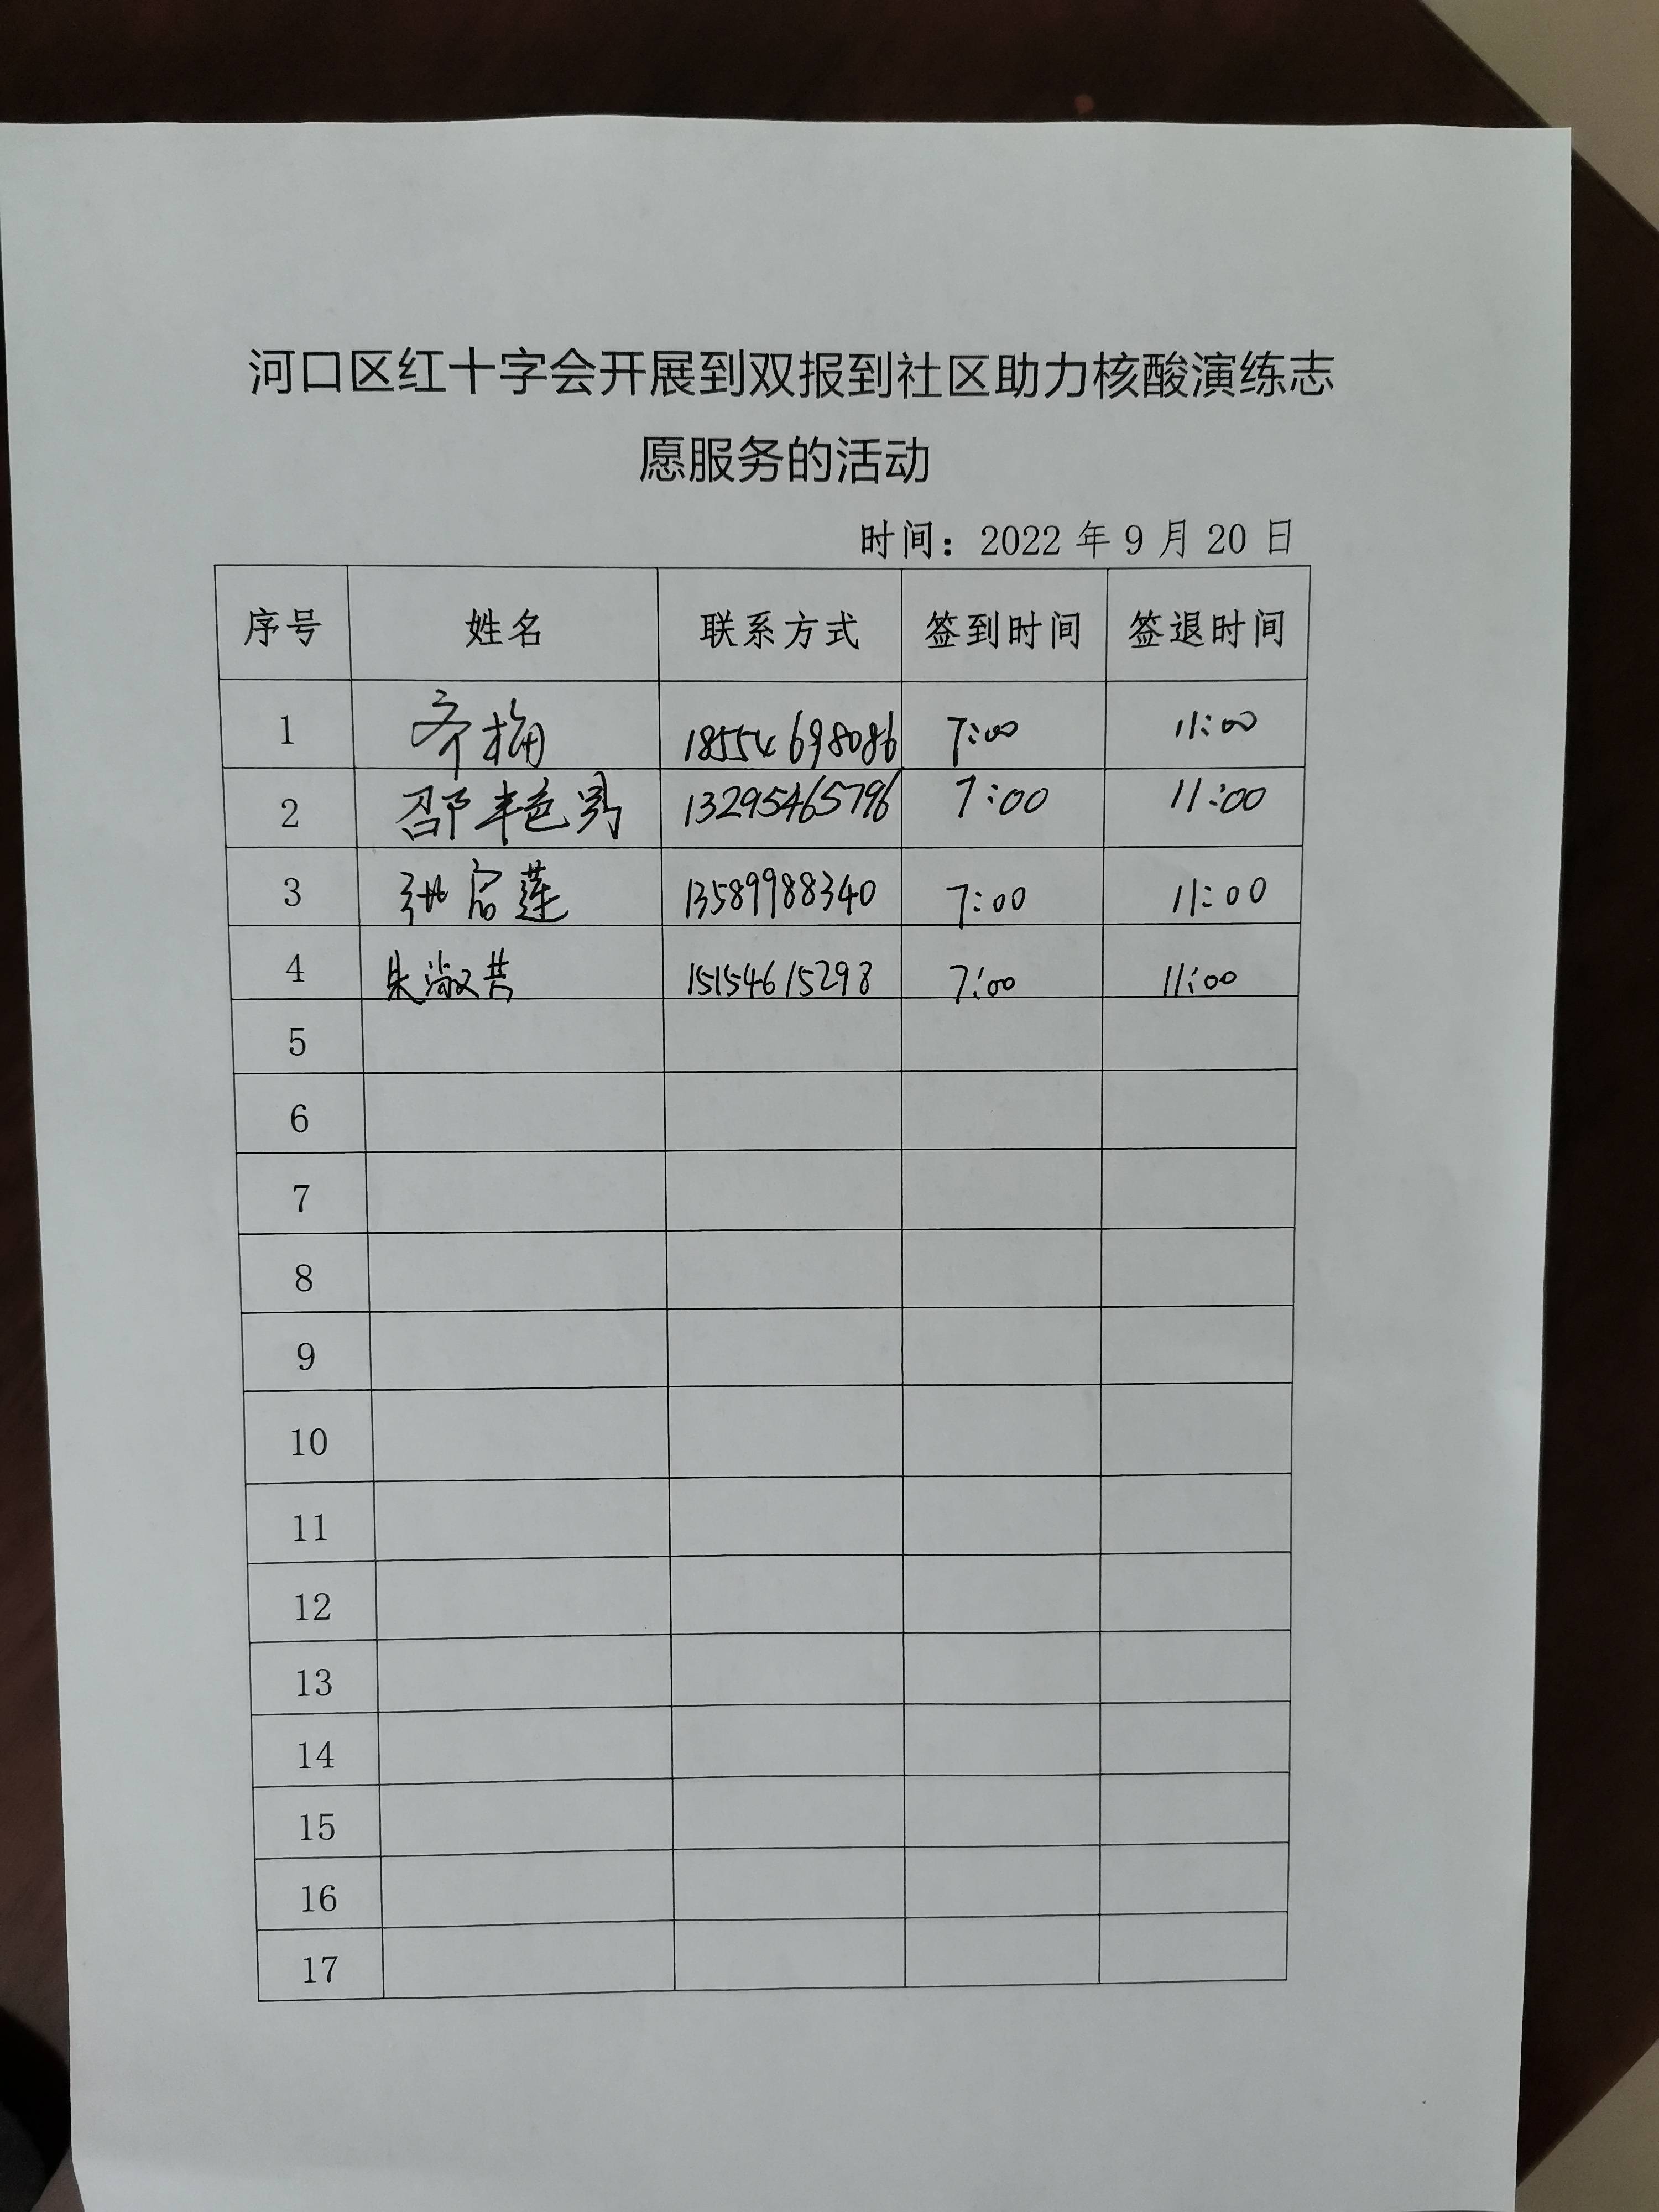 河口区红十字会开展到双报到社区助力核酸演练志
愿服务的活动
时间：2022 年 9 月 20 日
序号 姓名 联系方式 签到时间 签退时间
1 齐梅 18554698086 7:00 11:00
2 邵艳 13295465796 7:00 11:00
3 张启莲 13589988340 7:00 11:00
4 朱淑芸 15154615298 7:00 11:00
5
6
7
8
9
10
11
12
13
14
15
16
17